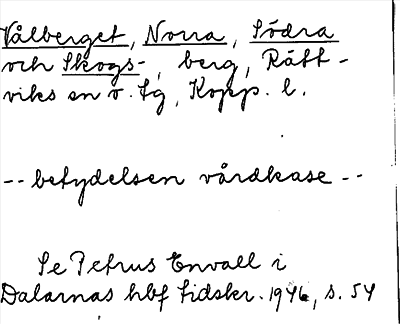 Vålberget, Norra, Södra
och Skogs-, berg, Rätt-
viks sn o. tg, Kopp. l.
-- betydelsen vårdkase --
Se Petrus Envall i
Dalarnas hbf tidskr. 1946, s. 54